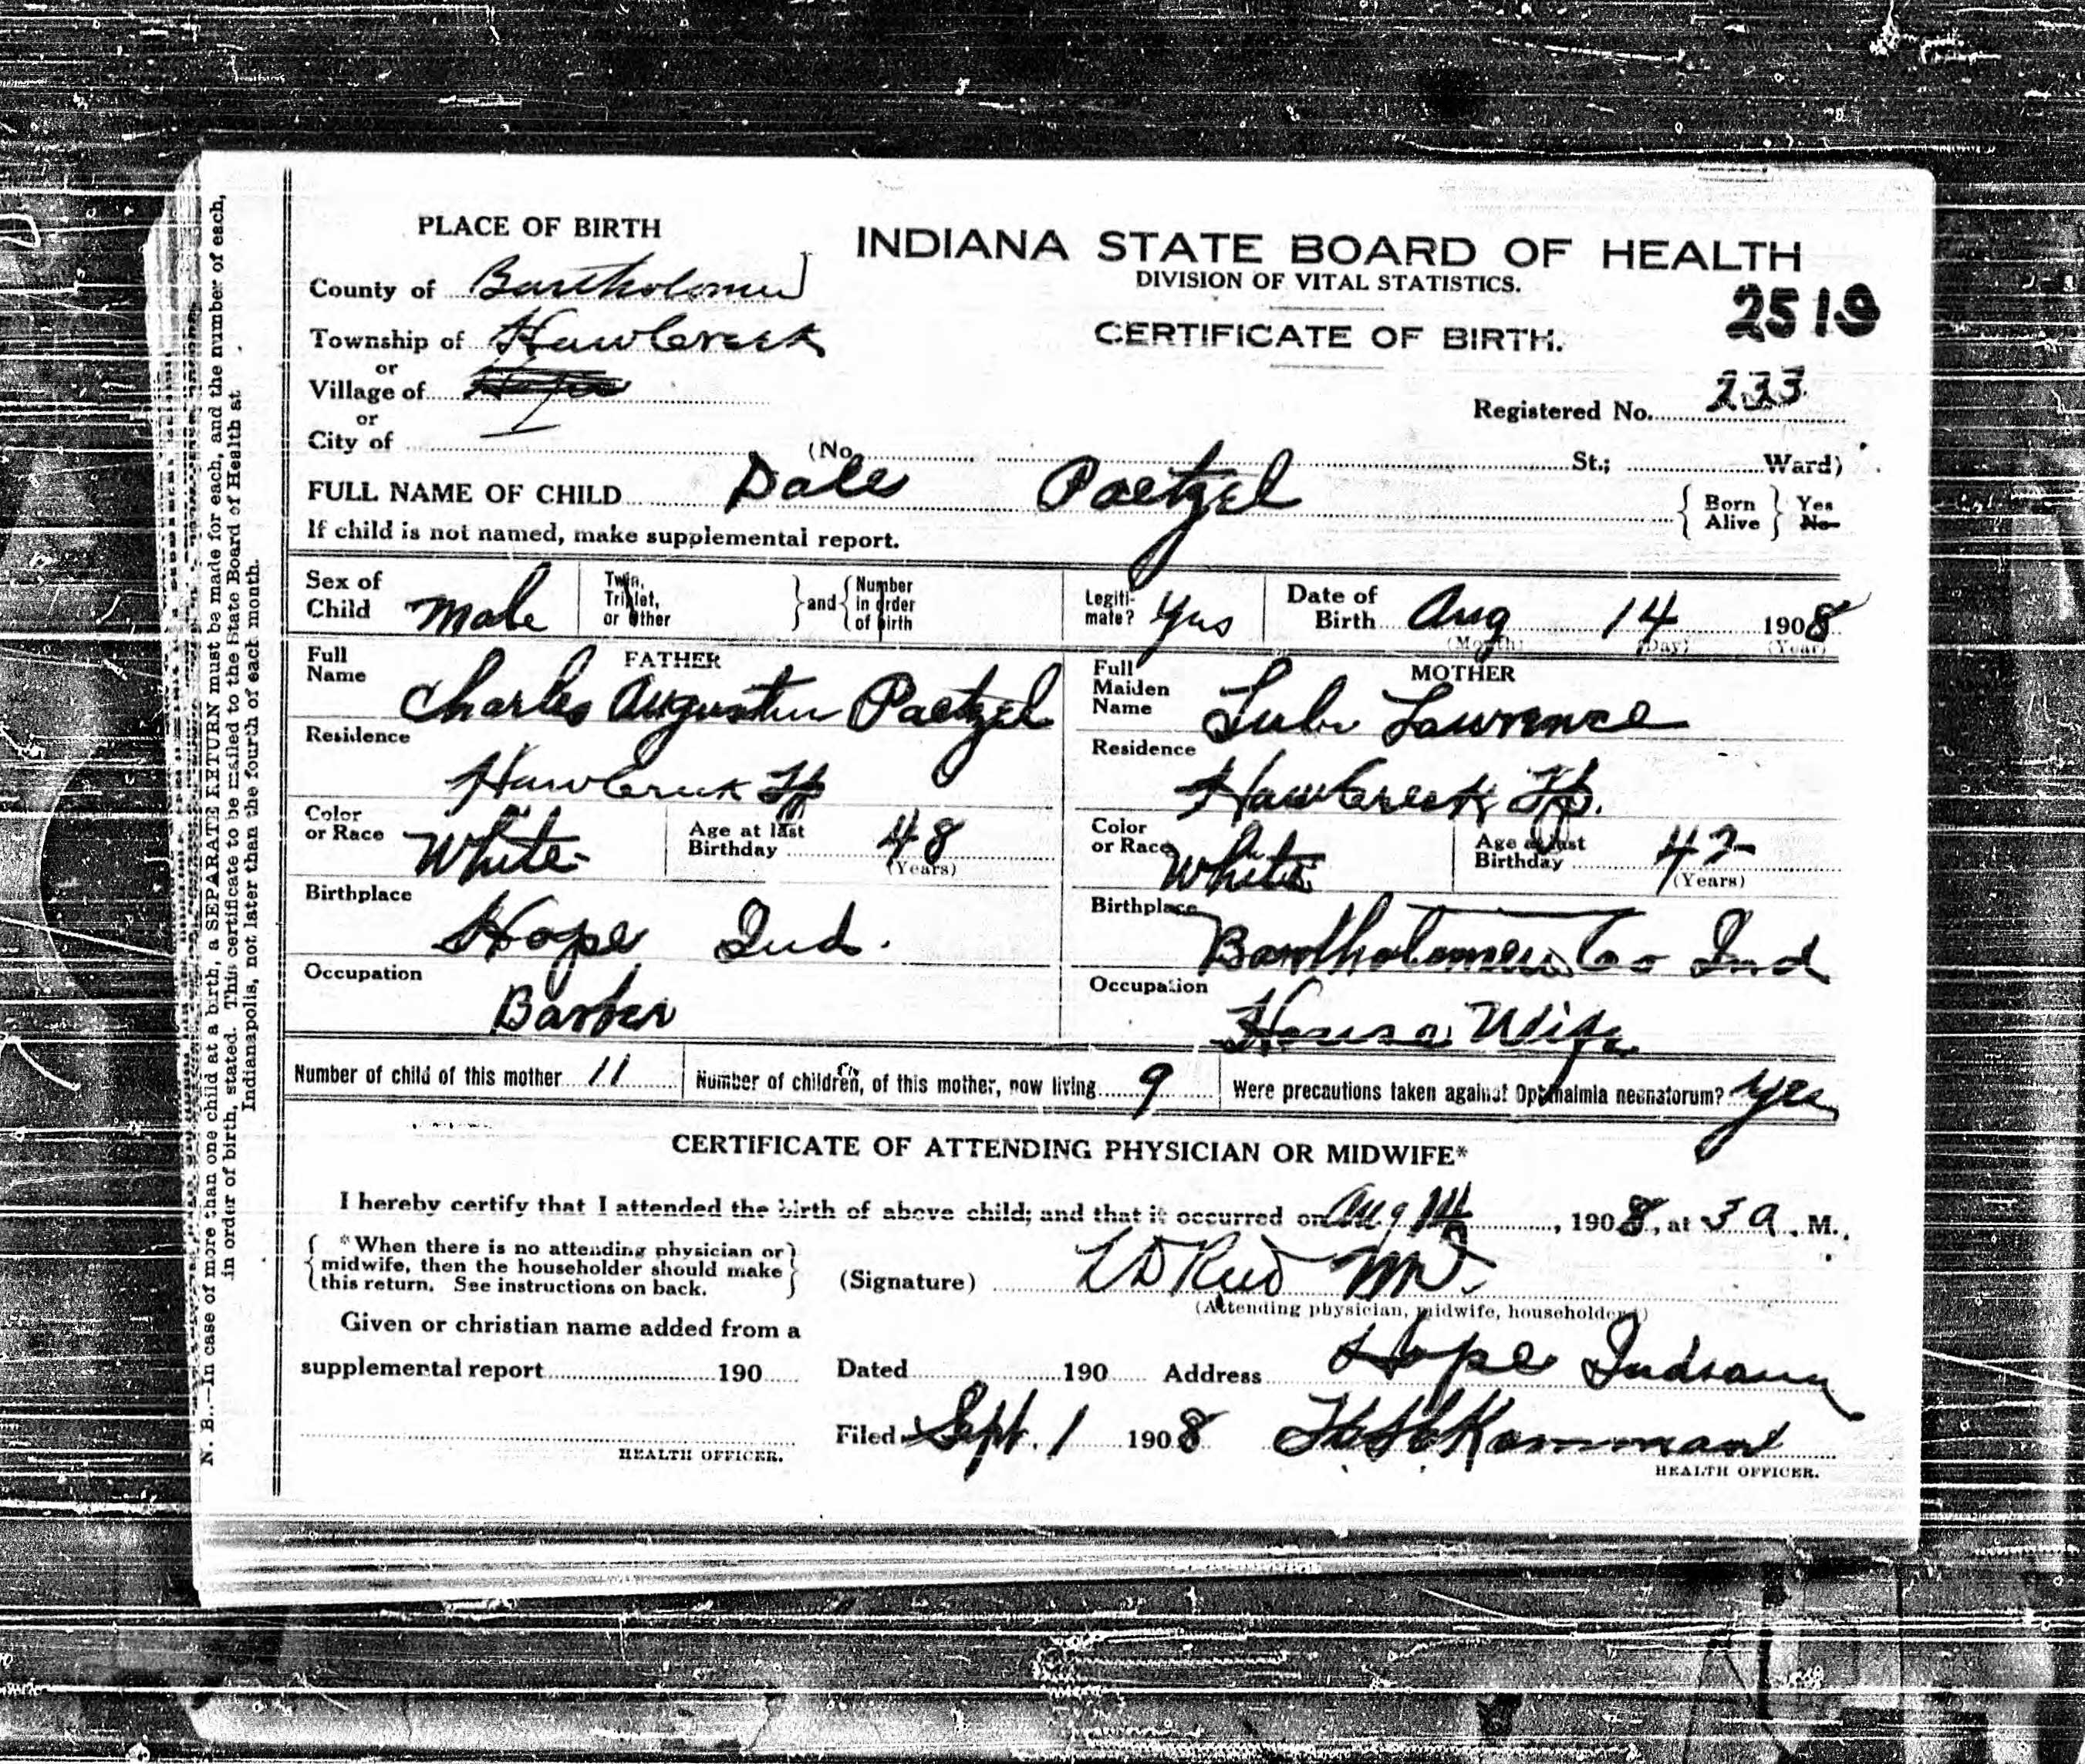 PLACE OF BIRTH
INDIANA STATE BOARD OF HEALTH
DIVISION OF VITAL STATISTICS.
CERTIFICATE OF BIRTH.
2519
Registered No. 233
County of Bartholomew
Township of Hawcreek
or
Village of Hope
or
City of (No. St.; Ward)
FULL NAME OF CHILD Dale Paetzel { Born Alive } Yes No
If child is not named, make supplemental report.
Sex of Child Male
Twin, Triplet, or Other } and { Number in order of birth
Legitimate? Yes
Date of Birth Aug 14 1908
(Month) (Day) (Year)
FATHER
Full Name Charles Augustus Paetzel
Residence Hawcreek Tp
Color or Race White
Age at last Birthday 48 (Years)
Birthplace Hope Ind.
Occupation Barber
MOTHER
Full Maiden Name Lawrence
Residence Hawcreek Tp.
Color or Race White
Age at last Birthday 42 (Years)
Birthplace Bartholomew Co Ind
Occupation House Wife
Number of child of this mother 11
Number of children, of this mother, now living 9
Were precautions taken against Ophthalmia neonatorum? Yes
CERTIFICATE OF ATTENDING PHYSICIAN OR MIDWIFE*
I hereby certify that I attended the birth of above child; and that it occurred on Aug 14, 1908, at 3 a. M.
{ *When there is no attending physician or midwife, then the householder should make this return. See instructions on back. }
(Signature) Reed MD.
(Attending physician, midwife, householder)
Given or christian name added from a
supplemental report 190
Dated 190 Address Hope Indiana
Filed Sept. 1 1908
HEALTH OFFICER.
HEALTH OFFICER.
N. B.--In case of more than one child at a birth, a SEPARATE RETURN must be made for each, and the number of each,
in order of birth, stated. This certificate to be mailed to the State Board of Health at
Indianapolis, not later than the fourth of each month.